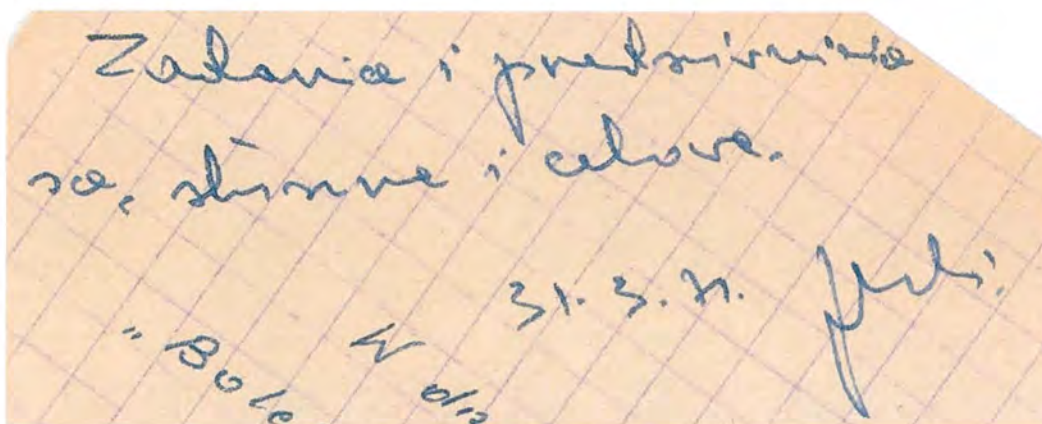 Zadania i przedsięwzięcia
są słuszne i celowe.
31.3.71.
"Bole
W dn